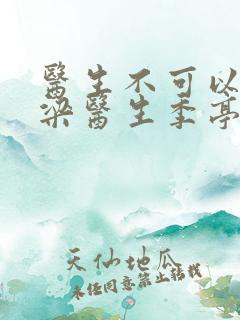 醫生不可以
梁醫生季亭
天仙地瓜
未经同意禁止转载